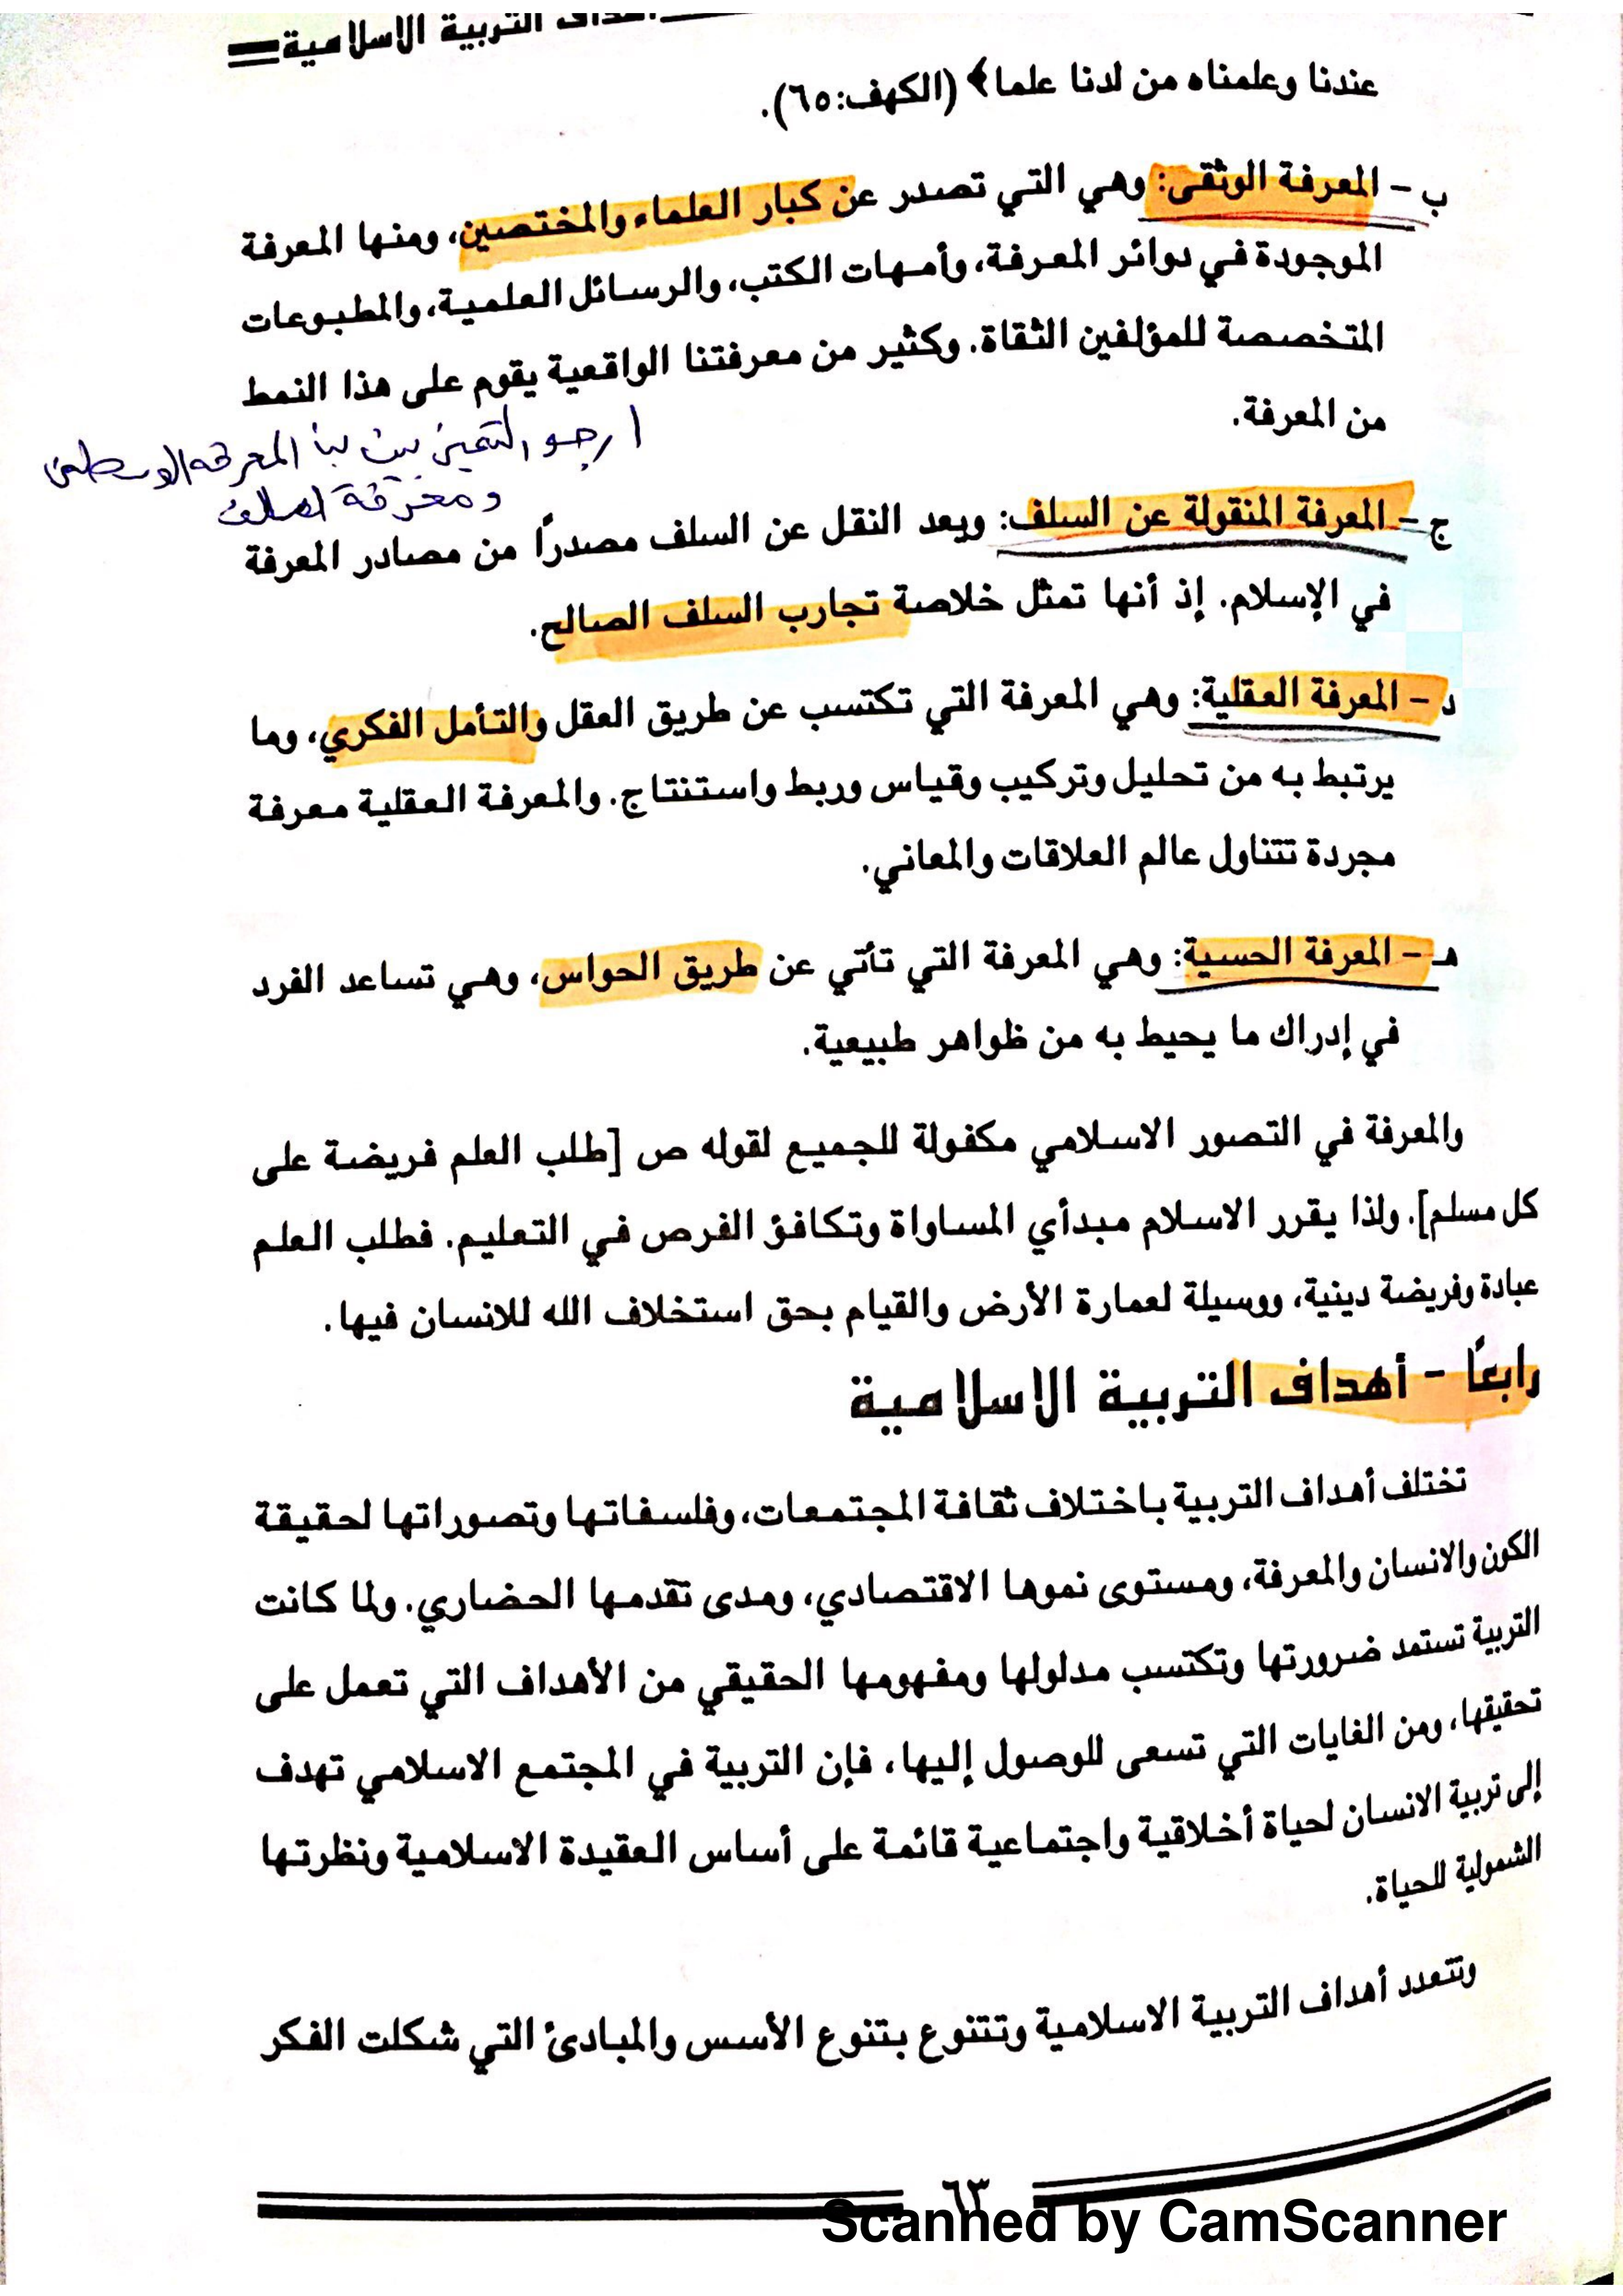 أهداف التربية الاسلامية
عندنا وعلمناه من لدنا علما﴾ (الكهف:٦٥).
ب - المعرفة الوثقى: وهي التي تصدر عن كبار العلماء والمختصين، ومنها المعرفة
الموجودة في دوائر المعرفة، وأمهات الكتب، والرسائل العلمية، والمطبوعات
المتخصصة للمؤلفين الثقاة. وكثير من معرفتنا الواقعية يقوم على هذا النمط
من المعرفة.
ارجو التمييز بين المعرفة
ومعرفة السلف
ج - المعرفة المنقولة عن السلف: ويعد النقل عن السلف مصدراً من مصادر المعرفة
في الإسلام. إذ أنها تمثل خلاصة تجارب السلف الصالح.
د - المعرفة العقلية: وهي المعرفة التي تكتسب عن طريق العقل والتأمل الفكري، وما
يرتبط به من تحليل وتركيب وقياس وربط واستنتاج. والمعرفة العقلية معرفة
مجردة تتناول عالم العلاقات والمعاني.
هـ - المعرفة الحسية: وهي المعرفة التي تأتي عن طريق الحواس، وهي تساعد الفرد
في إدراك ما يحيط به من ظواهر طبيعية.
والمعرفة في التصور الاسلامي مكفولة للجميع لقوله ص [طلب العلم فريضة على
كل مسلم]. ولذا يقرر الاسلام مبدأي المساواة وتكافؤ الفرص في التعليم. فطلب العلم
عبادة وفريضة دينية، ووسيلة لعمارة الأرض والقيام بحق استخلاف الله للانسان فيها.
رابعاً - أهداف التربية الاسلامية
تختلف أهداف التربية باختلاف ثقافة المجتمعات، وفلسفاتها وتصوراتها لحقيقة
الكون والانسان والمعرفة، ومستوى نموها الاقتصادي، ومدى تقدمها الحضاري. ولما كانت
التربية تستمد ضرورتها وتكتسب مدلولها ومفهومها الحقيقي من الأهداف التي تعمل على
تحقيقها، ومن الغايات التي تسعى للوصول إليها، فإن التربية في المجتمع الاسلامي تهدف
إلى تربية الانسان لحياة أخلاقية واجتماعية قائمة على أساس العقيدة الاسلامية ونظرتها
الشمولية للحياة.
وتتعدد أهداف التربية الاسلامية وتتنوع بتنوع الأسس والمبادئ التي شكلت الفكر
٦٣
Scanned by CamScanner